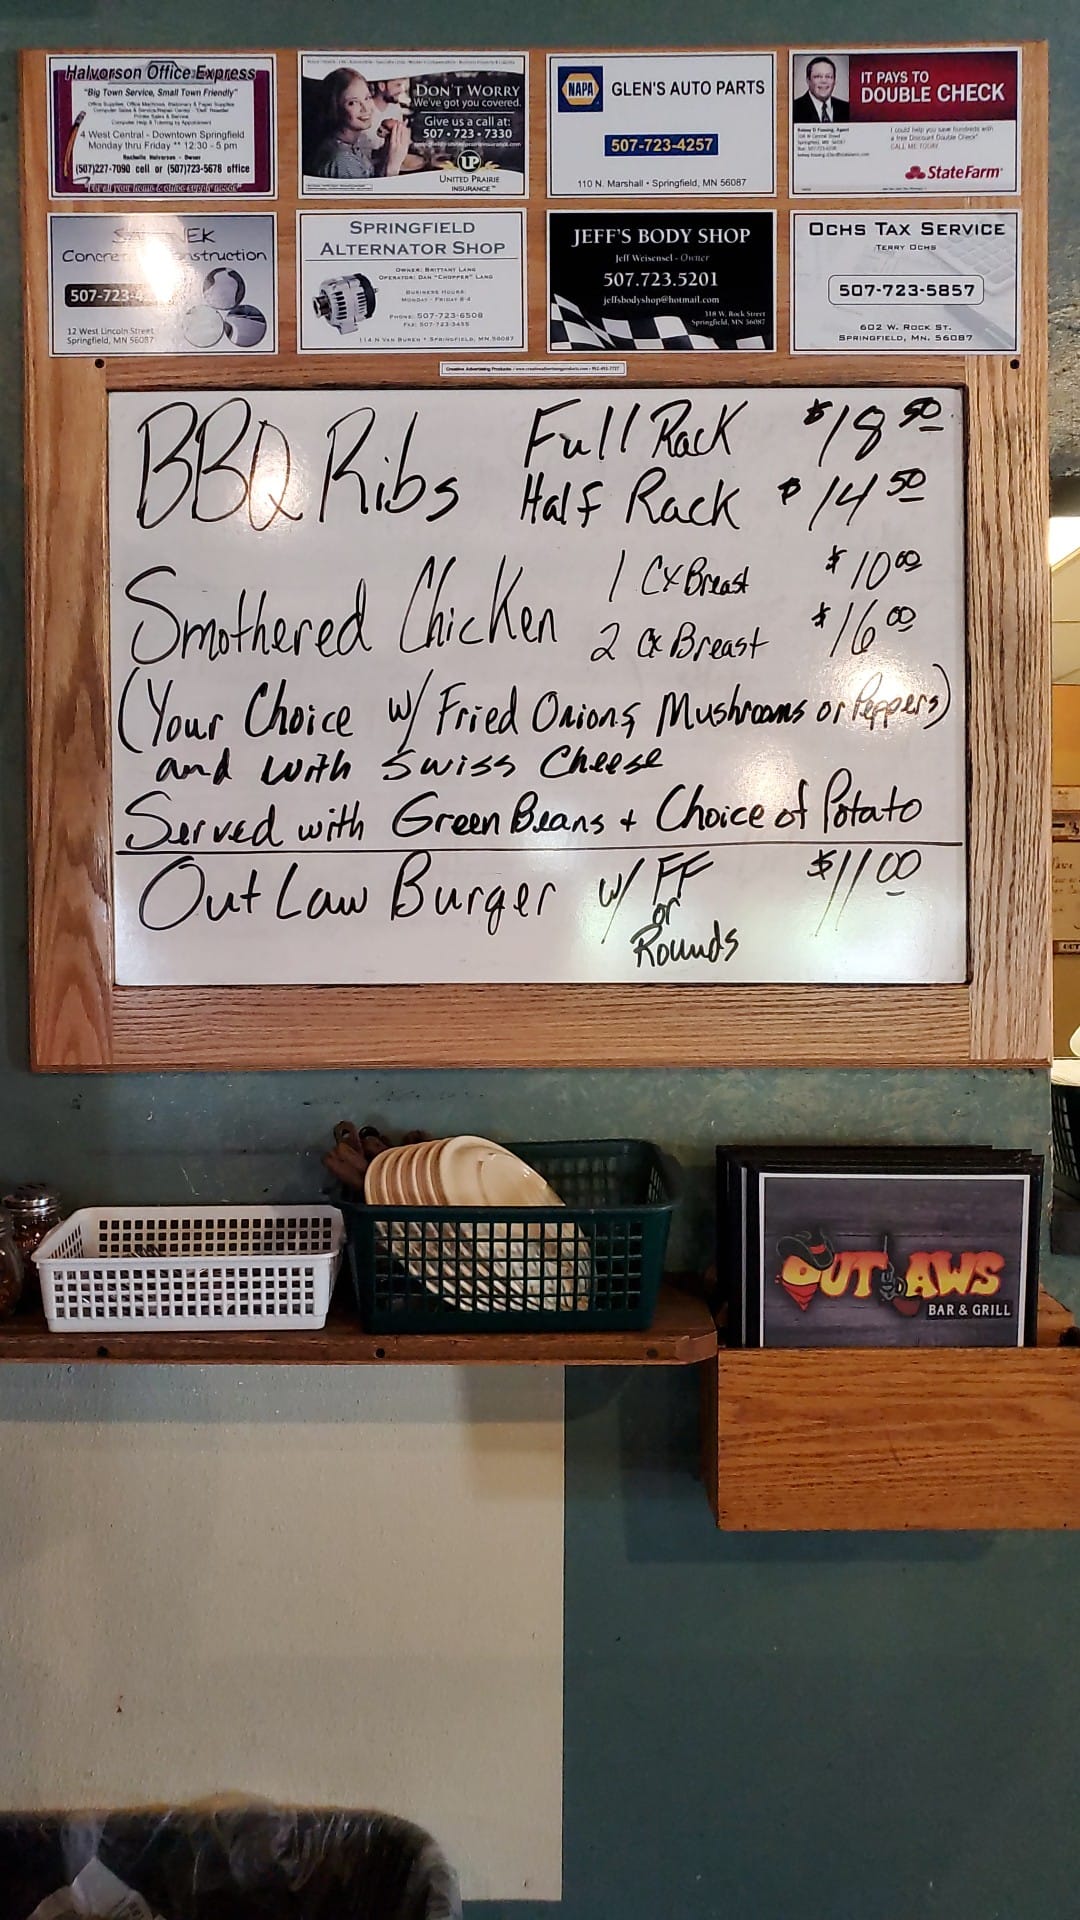 Halvorson Office Express
"Big Town Service, Small Town Friendly"
Office Supplies, Office Machines, Stationary & Paper Supplies
Computer Sales & Service/Repair Center
Computer Help & Training by Appointment
4 West Central - Downtown Springfield
Monday thru Friday ** 12:30 - 5 pm
Rachelle Halvorson - Owner
(507)227-7090 cell or (507)723-5678 office
"For all your home & office supply needs"
DON'T WORRY
We've got you covered.
Give us a call at:
507 • 723 • 7330
UP
UNITED PRAIRIE
INSURANCE
NAPA
GLEN'S AUTO PARTS
507-723-4257
110 N. Marshall • Springfield, MN 56087
IT PAYS TO
DOUBLE CHECK
I could help you save hundreds with
a free Discount Double Check.
CALL ME TODAY.
State Farm
NEK
Concre nstruction
507-723-4
12 West Lincoln Street
Springfield, MN 56087
SPRINGFIELD
ALTERNATOR SHOP
OWNER: BRITTANY LANG
OPERATOR: DAN "CHOPPER" LANG
BUSINESS HOURS:
MONDAY - FRIDAY 8-4
PHONE: 507-723-6508
FAX: 507-723-3455
114 N VAN BUREN • SPRINGFIELD, MN 56087
JEFF'S BODY SHOP
Jeff Weisensel - Owner
507.723.5201
jeffsbodyshop@hotmail.com
318 W. Rock Street
Springfield, MN 56087
OCHS TAX SERVICE
TERRY OCHS
507-723-5857
602 W. ROCK ST.
SPRINGFIELD, MN. 56087
Creative Advertising Products / www.creativeadvertisingproducts.com • 952-492-7727
BBQ Ribs Full Rack $18 50
Half Rack $14 50
Smothered Chicken 1 Cx Breast $10 00
2 Cx Breast $16 00
(Your Choice w/ Fried Onions, Mushrooms or Peppers)
and with Swiss Cheese
Served with Green Beans + Choice of Potato
OutLaw Burger w/ FF $11 00
or
Rounds
OUTLAWS
BAR & GRILL